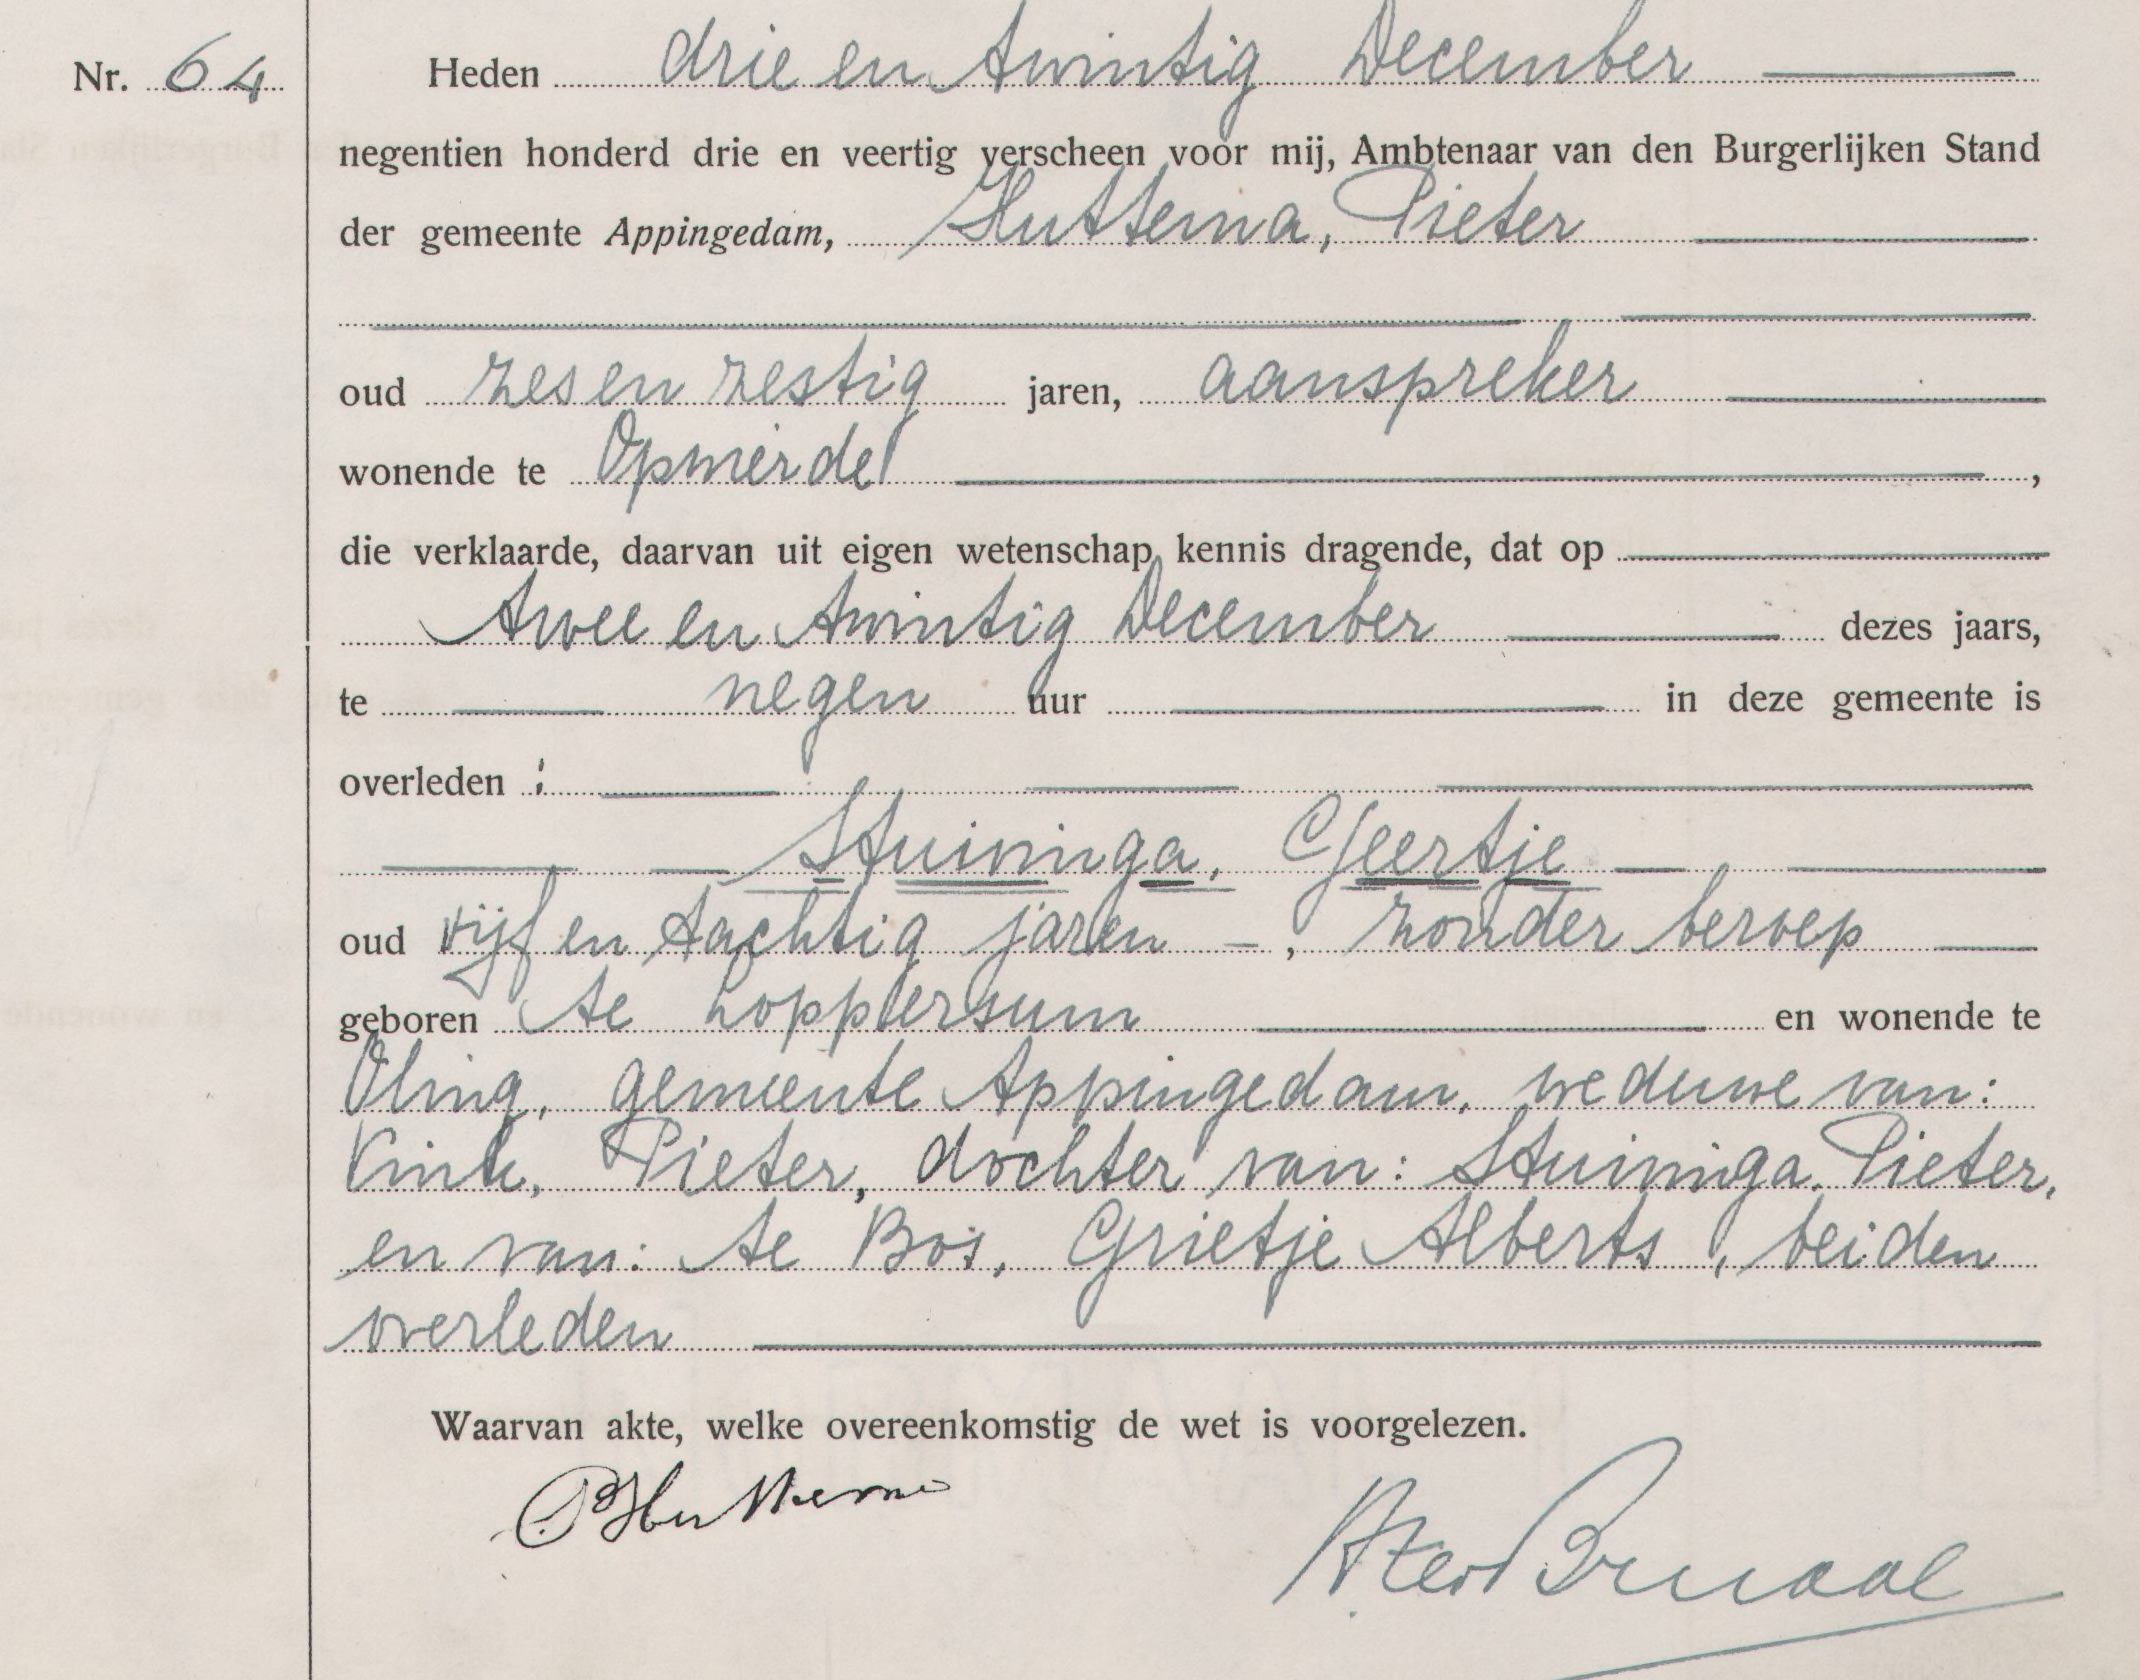 Nr. 64
Heden drie en twintig December
negentien honderd drie en veertig verscheen voor mij, Ambtenaar van den Burgerlijken Stand
der gemeente Appingedam, Huttema, Pieter
oud zes en zestig jaren, aanspreker
wonende te Opwierde,
die verklaarde, daarvan uit eigen wetenschap kennis dragende, dat op
twee en twintig December dezes jaars,
te negen uur in deze gemeente is
overleden :
Stuivinga, Geertje
oud vijf en tachtig jaren -, zonder beroep
geboren te Loppersum en wonende te
Oling, gemeente Appingedam, weduwe van:
Vink, Pieter, dochter van: Stuivinga, Pieter,
en van: te Bos, Grietje Alberts, beiden
overleden
Waarvan akte, welke overeenkomstig de wet is voorgelezen.
P Huttema